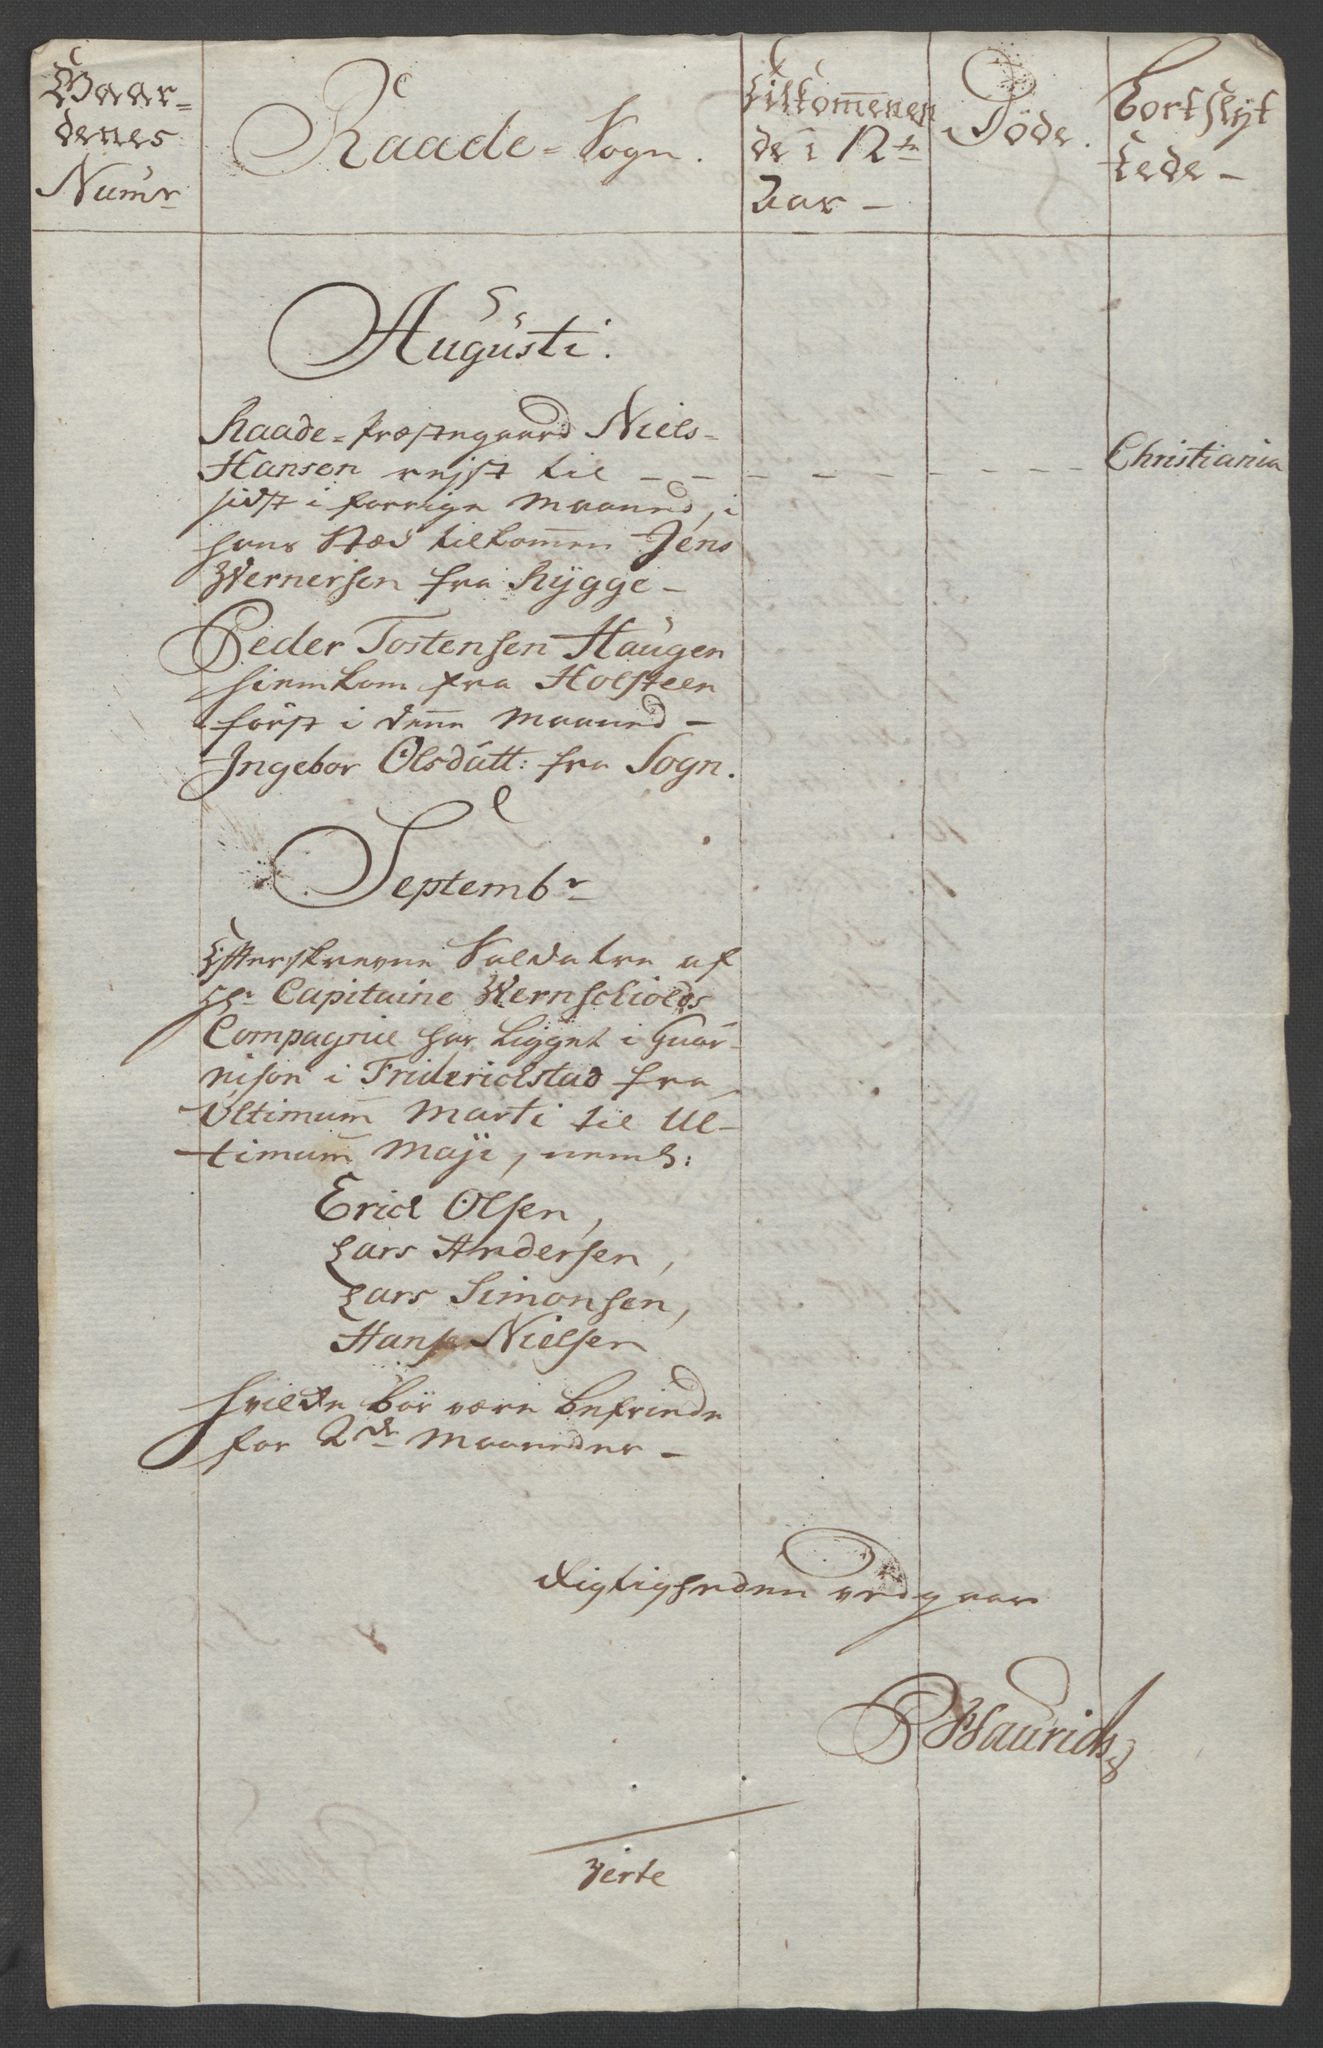 Gaar=
denes
Numr
Raade= Sogn.
Tilkom̅enen
de i 12te
Aar –
Döde.
Bortflyt
tede –
Augusti.
Raade= Præstegaard Niels
Hansen rejst til – – – – – – – – Christiania
sidst i forrige Maaned, i
hans Stæd tilkom̅en Jens
Wernersen fra Rygge –
Peder Tostensen Haugen
hiemkom fra Holsteen
först i den̅e Maaned –
Ingebor Olsdatt: fra Sogn.
Septembr
Efterskrevne Soldatre af
Hr. Capitaine Wernschiolds
Compagnie har ligget i Guar-
nison i Friderichstad fra
Ultimum̅ Marti til Ul-
timum̅ Maji, neml:
Erich Olsen,
Lars Andersen,
Lars Simonsen,
Hans Nielsen
hvilke bör være befriede
for 2de Maaneder –
Rigtigheden vedgaar
Verte